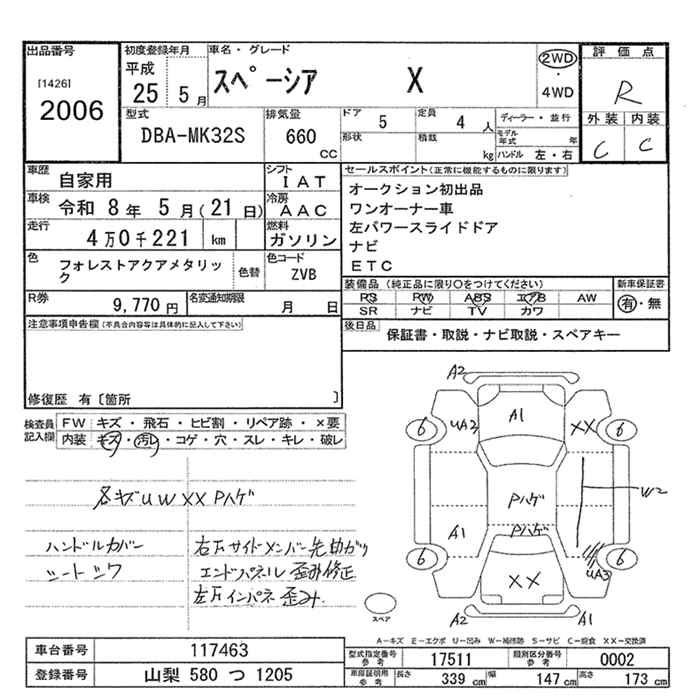 出品番号
[1426]
2006
初度登録年月
平成
25 5月
車名・グレード
スペーシア X
2WD
・
4WD
評価点
R
外装 内装
C C
型式
DBA-MK32S
排気量
660
CC
ドア
5
形状
定員
4 人
積載
kg
ディーラー・並行
モデル年式 年
ハンドル 左・右
車歴
自家用
シフト
IAT
車検
令和 8年 5月(21日)
冷房
AAC
走行
4万0千221 km
燃料
ガソリン
色
フォレストアクアメタリック
色替
色コード
ZVB
R券
9,770円
名変通知期限
月 日
セールスポイント(正常に機能するものに限ります)
オークション初出品
ワンオーナー車
左パワースライドドア
ナビ
ETC
装備品(純正品に限り○をつけてください)
PS PW ABS エアB AW
SR ナビ TV カワ
新車保証書
有・無
後日品
保証書・取説・ナビ取説・スペアキー
注意事項申告欄(不具合内容等は具体的に記入して下さい)
修復歴 有〔箇所 〕
検査員記入欄
FW キズ・飛石・ヒビ割・リペア跡・×要
内装 キズ・汚レ・コゲ・穴・スレ・キレ・破レ
各キズUWXXPハゲ
ハンドルカバー
シートシワ
右Fサイドメンバー先曲がり
エンドパネル歪み修正
左Fインパネ歪み
A2
UA2
A1
XX
6
6
Pハゲ
W2
A1
Pハゲ
6
6
UA3
XX
A2
A1
スペア
A-キズ E-エクボ U-凹み W-補修跡 S-サビ C-腐食 XX-交換済
車台番号
117463
登録番号
山梨 580 つ 1205
型式指定番号
参考
17511
類別区分番号
参考
0002
車庫証明用
参考
長さ
339 cm
幅
147 cm
高さ
173 cm